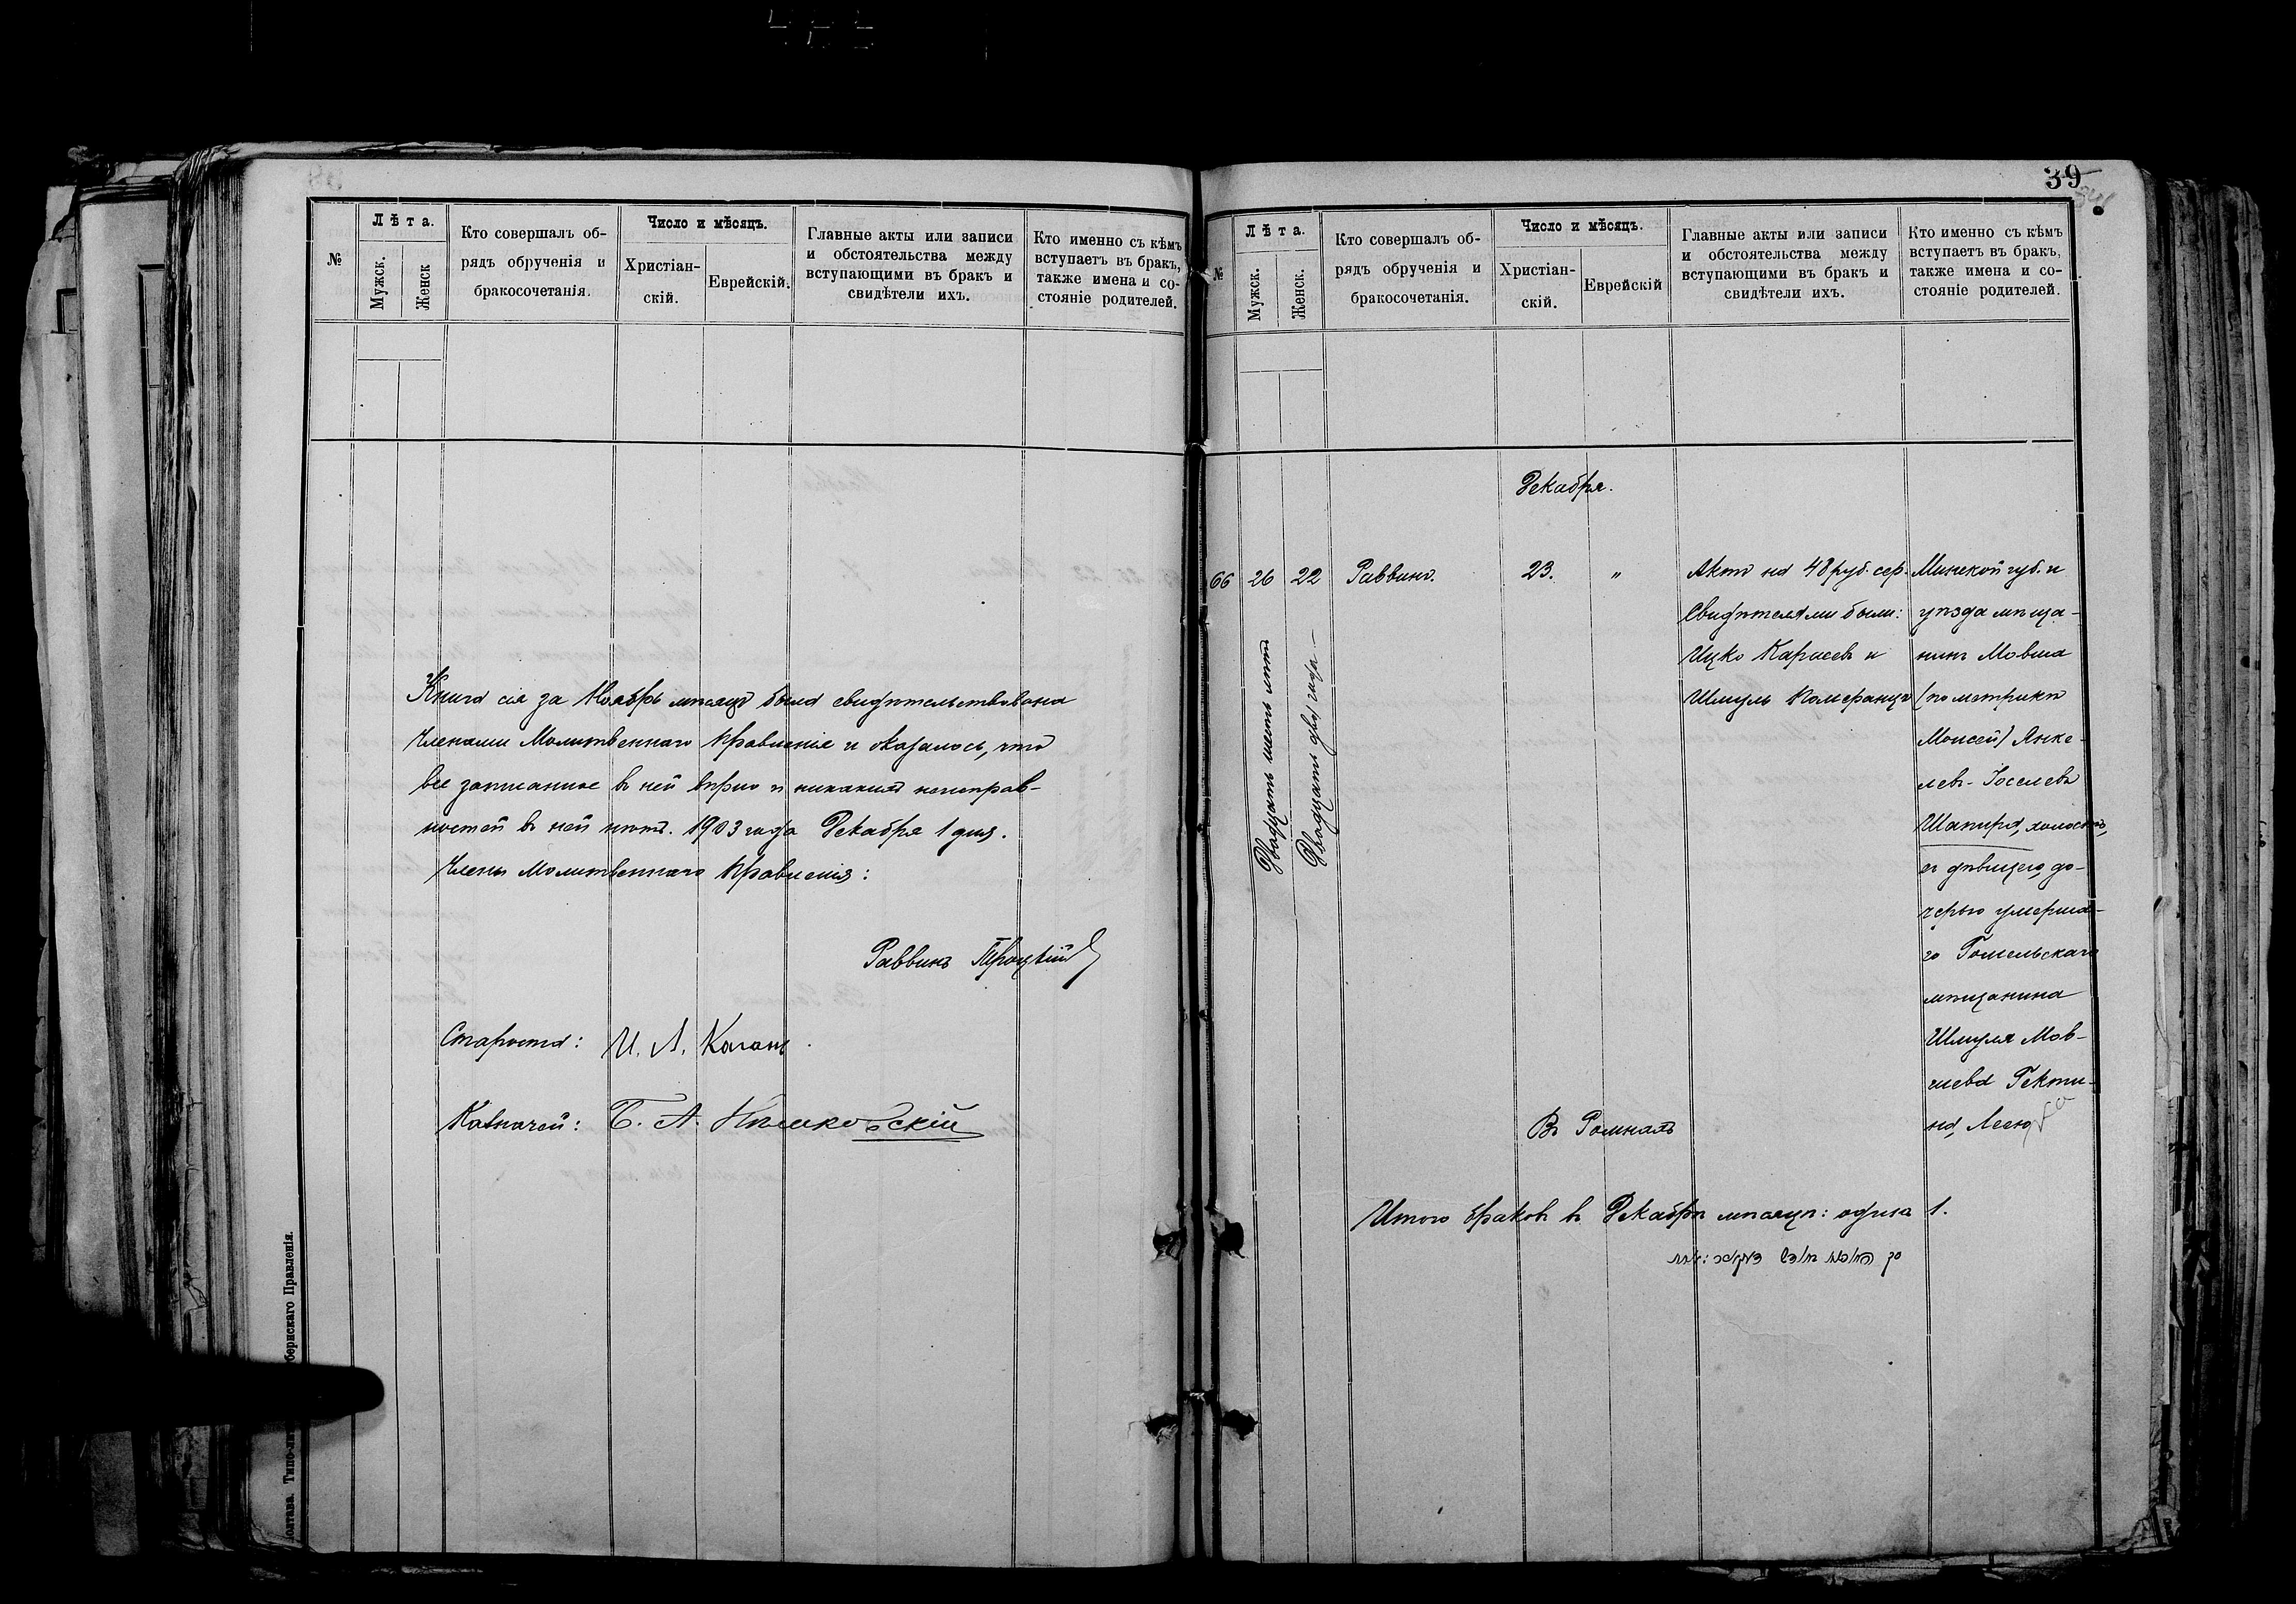 №
Лѣта.
Мужск.
Женск
Кто совершалъ об-
рядъ обрученія и
бракосочетанія.
Число и мѣсяцъ.
Христіан-
скій.
Еврейскій.
Главные акты или записи
и обстоятельства между
вступающими въ бракъ и
свидѣтели ихъ.
Кто именно съ кѣмъ
вступаетъ въ бракъ,
также имена и со-
стояніе родителей.
Книга сія за Ноябрь мѣсяцъ была свидѣтельствована
Членами Молитвеннаго Правленія и оказалось, что
все записанное въ ней вѣрно и никакихъ неисправ-
ностей въ ней нѣтъ. 1903 года Декабря 1 дня.
Члены Молитвеннаго Правленія:
Раввинъ Троцкій
Староста: И. Л. Коганъ.
Казначей: Б. А.
Типо-
бернскаго Правленія.
39
№
Лѣта.
Мужск.
Женск.
Кто совершалъ об-
рядъ обрученія и
бракосочетанія.
Число и мѣсяцъ.
Христіан-
скій.
Еврейскій
Главные акты или записи
и обстоятельства между
вступающими въ бракъ и
свидѣтели ихъ.
Кто именно съ кѣмъ
вступаетъ въ бракъ,
также имена и со-
стояніе родителей.
Декабря.
66
26
Двадцать шесть лѣтъ
22
Двадцать два года
Раввинъ.
23.
"
Актъ на 48 руб. сер.
Свидѣтелями были:
Ицко Карасевъ и
Шмуль Померанцъ
Минской губ. и
уѣзда мѣща-
нинъ Мовша
(по метрикѣ
Моисей) Янке-
лев-Іоселевъ
Шапира, холостъ,
съ дѣвицею, до-
черью умерша-
го Гомельскаго
мѣщанина
Шмуля Мов-
шева Ректи-
на, Лесю
Въ Ромнахъ
Итого браковъ въ Декабрѣ мѣсяцѣ: одинъ 1.